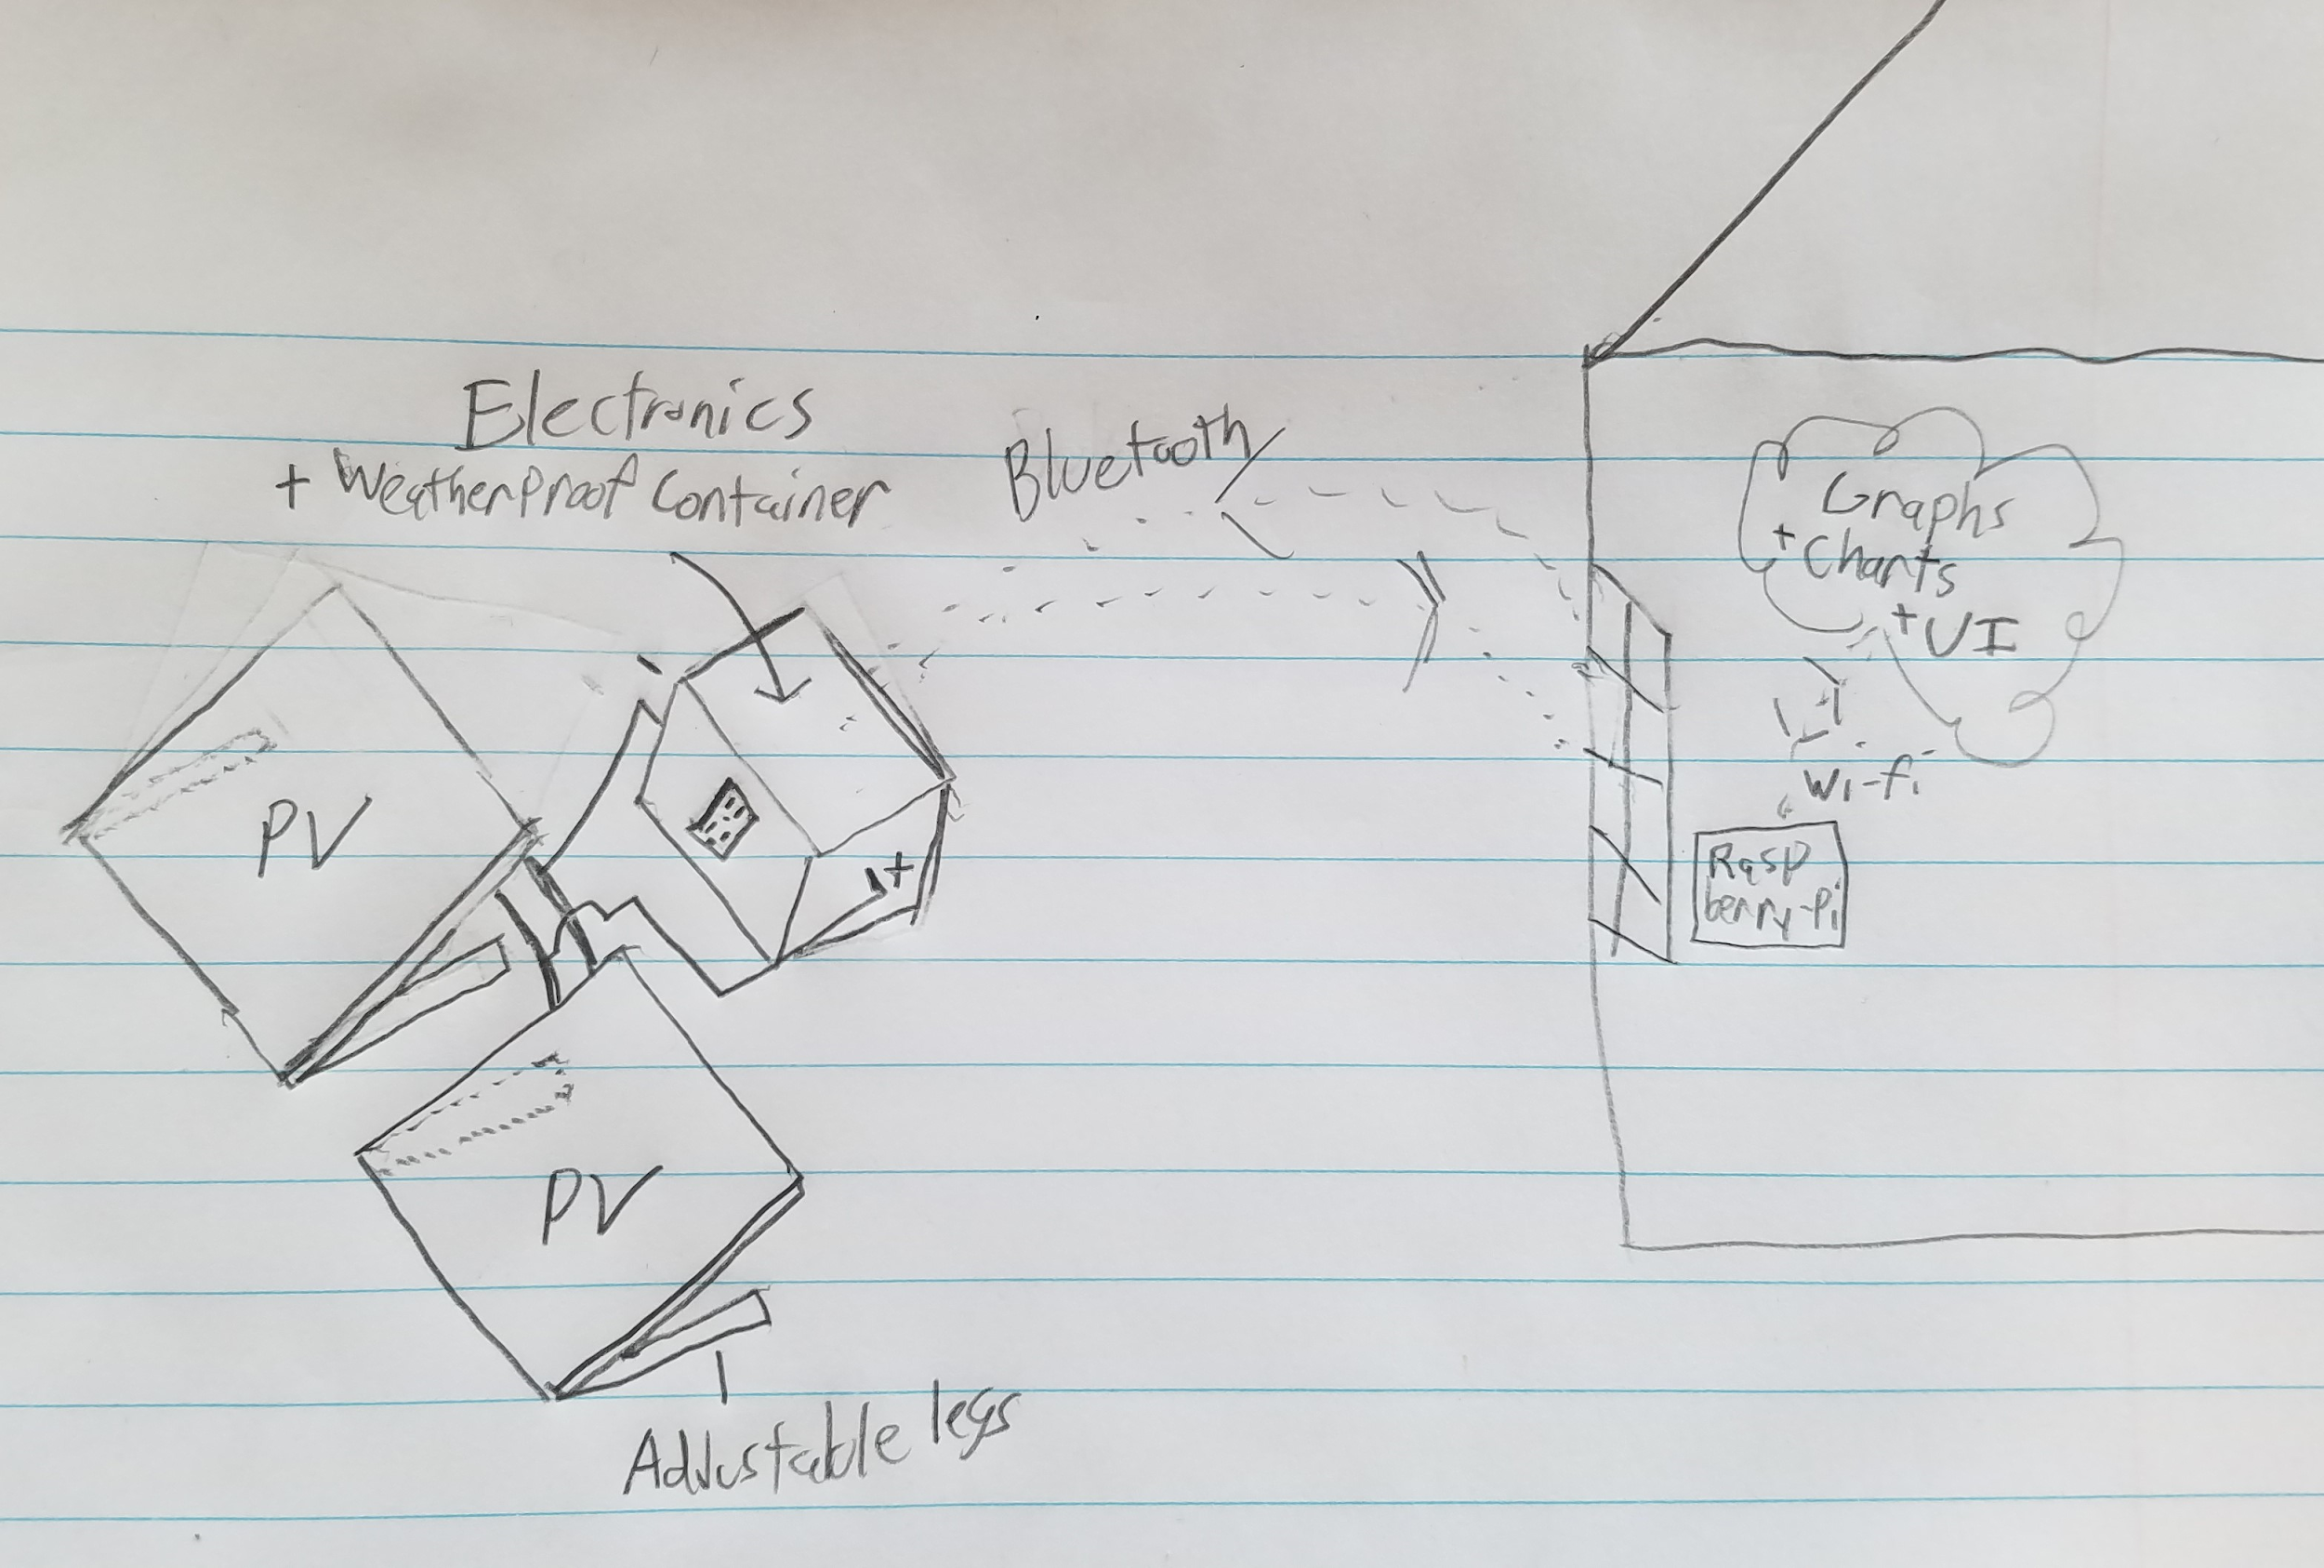 Electronics
+ Weatherproof Container
Bluetooth
Graphs
+ Charts
+ UI
Wi-fi
Rasp
berry-Pi
PV
+
PV
Adjustable legs